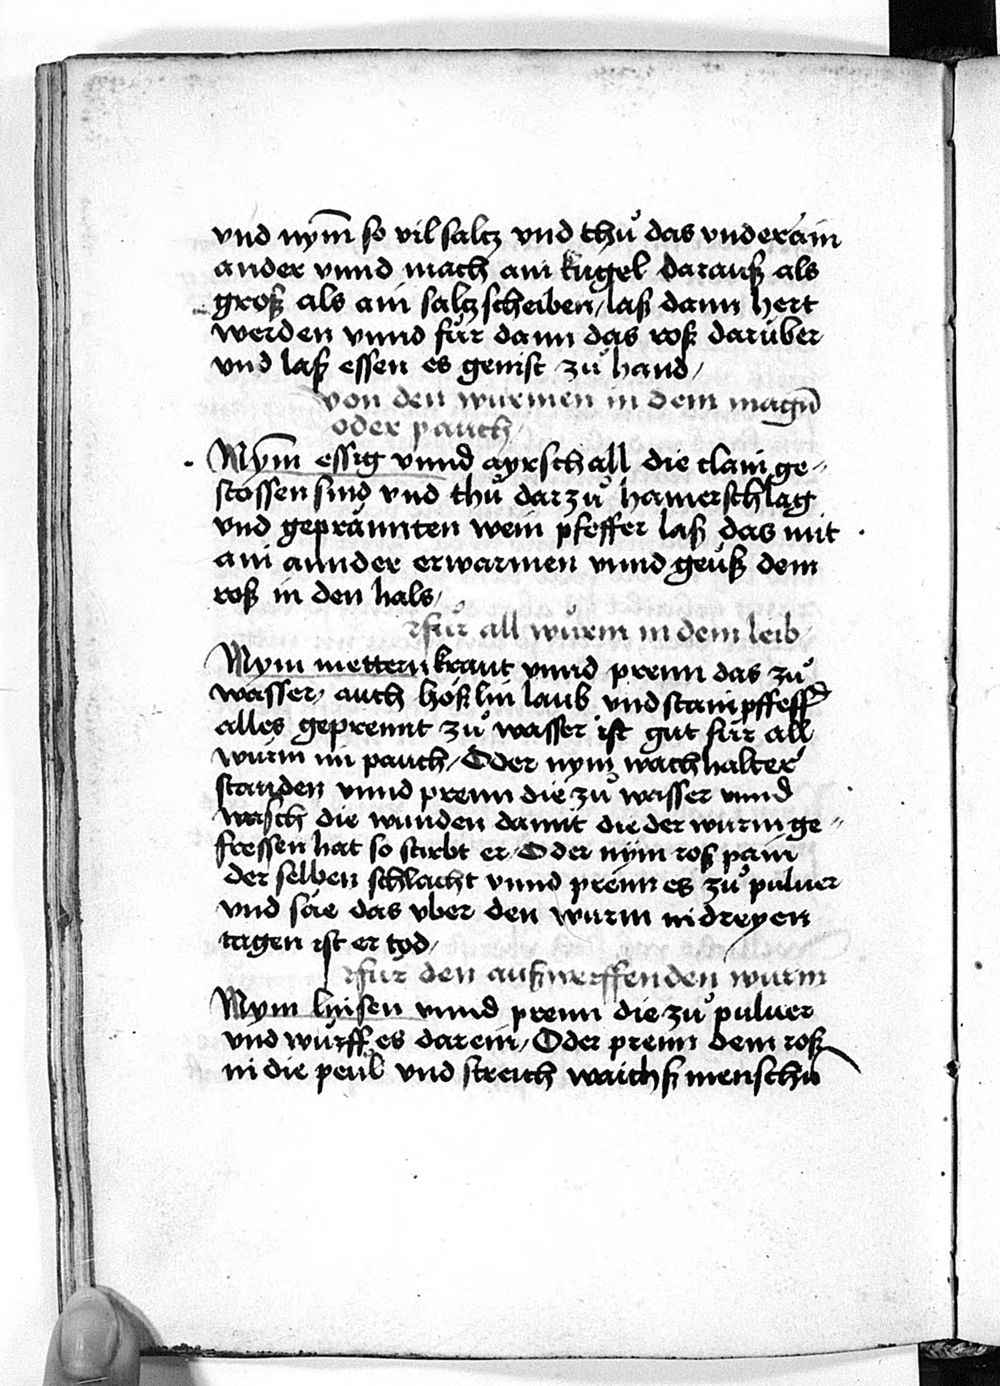 vnd nym̄ so vil saltz vnd thů das vnderain
ander vnnd mach ain kugel darauß als
groß als ain saltzscheiben / laß dann hert
werden vnnd für dann das roß darüber
vnd laß essen es genist zů hand /
von den würmen in dem magn̄
oder pauch /
Nym̄ essig vnnd ayrschall die clain ge⸗
stossen sind vnd thů darzů hamerschlag
vnd geprännten wein pfeffer laß das mit
ain annder erwarmen vnnd geüß dem
roß in den hals /
für all würm in dem leib
Nym mettern kraut vnnd prenn das zů
wasser / auch höslin laub vnd stain pffeff
alles geprennt zů wasser ist gut für all
würm im pauch / Oder nym wachhalter
stauden vnnd prenn die zů wasser vnnd
wasch die wunden damit die der wurm ge⸗
fressen hat so stirbt er / Oder nym roß pain
der selben schlacht vnnd prenn es zů puluer
vnd säe das vber den wurm in dreyen
tagen ist er tod /
für den außwerffenden wurm
Nym linsen vnnd prenn die zů puluer
vnd würff es darein / Oder prenn dem roß
in die peül vnd streich waichß menschn̄